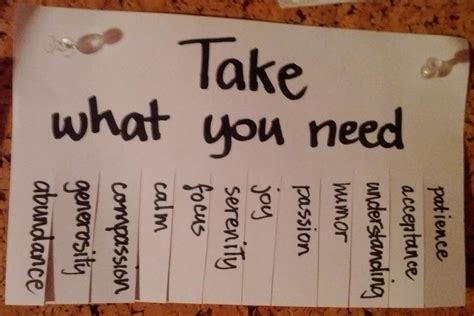 Take
what you need
abundance
generosity
compassion
calm
focus
serenity
joy
passion
humor
understanding
acceptance
patience